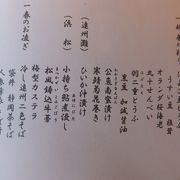 うすい豆
オランダ桜海老
九十せんべい
羽二重とうふ
黒豆 加減醤油
公魚南蛮漬け
寒鯖菊花巻き
ひいか汁漬け
（遠州灘）
小持ち鮎煮浸し
（浜松）
松風鋳込牛蒡
梅型カステラ
一春のお凌ぎ
冷し遠州二色そば
袋井 静岡茶そば